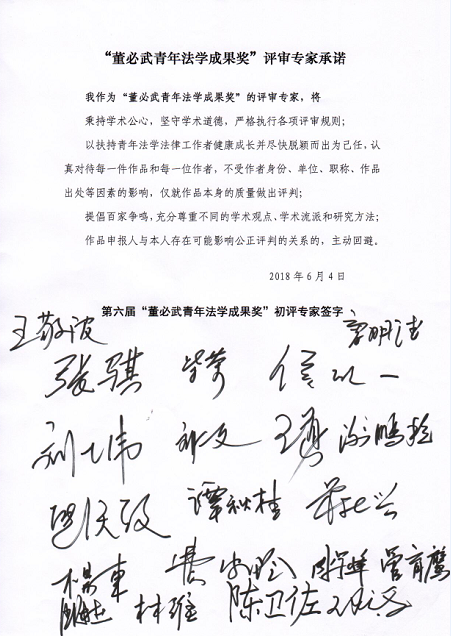 “董必武青年法学成果奖”评审专家承诺
我作为“董必武青年法学成果奖”的评审专家，将
秉持学术公心，坚守学术道德，严格执行各项评审规则；
以扶持青年法学法律工作者健康成长并尽快脱颖而出为己任，认
真对待每一件作品和每一位作者，不受作者身份、单位、职称、作品
出处等因素的影响，仅就作品本身的质量做出评判；
提倡百家争鸣，充分尊重不同的学术观点、学术流派和研究方法；
作品申报人与本人存在可能影响公正评判的关系的，主动回避。
2018 年 6 月 4 日
第六届“董必武青年法学成果奖”初评专家签字
王敬波
张骐 信
刘 伟
谭秋桂
林维 陈卫佐 管育鹰